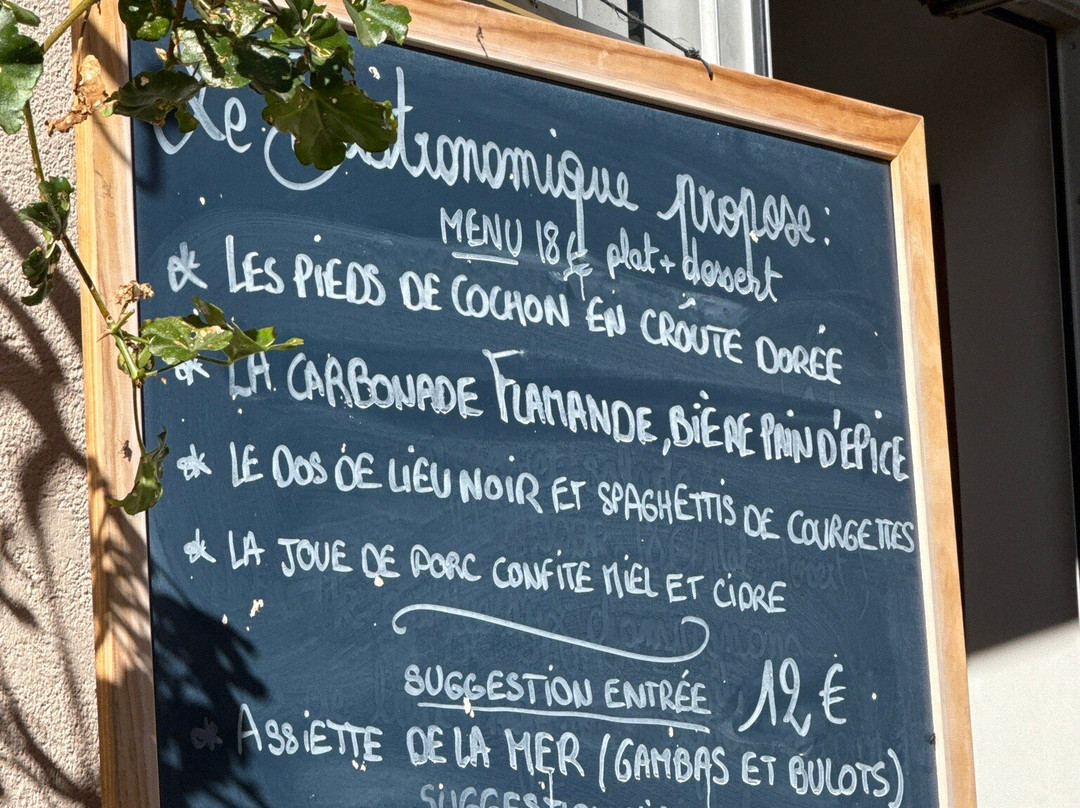 Le Gastronomique propose:
MENU 18€ plat + dessert
* LES PIEDS DE COCHON EN CROÛTE DORÉE
* LA CARBONADE FLAMANDE, BIÈRE PAIN D'EPICE
* LE DOS DE LIEU NOIR ET SPAGHETTIS DE COURGETTES
* LA JOUE DE PORC CONFITE MIEL ET CIDRE
SUGGESTION ENTRÉE 12€
* ASSIETTE DE LA MER (GAMBAS ET BULOTS)
SUGGESTION